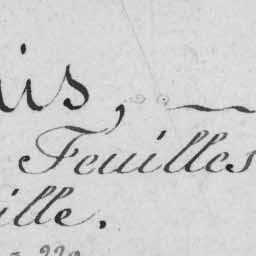 is, —
Feuilles
ille.